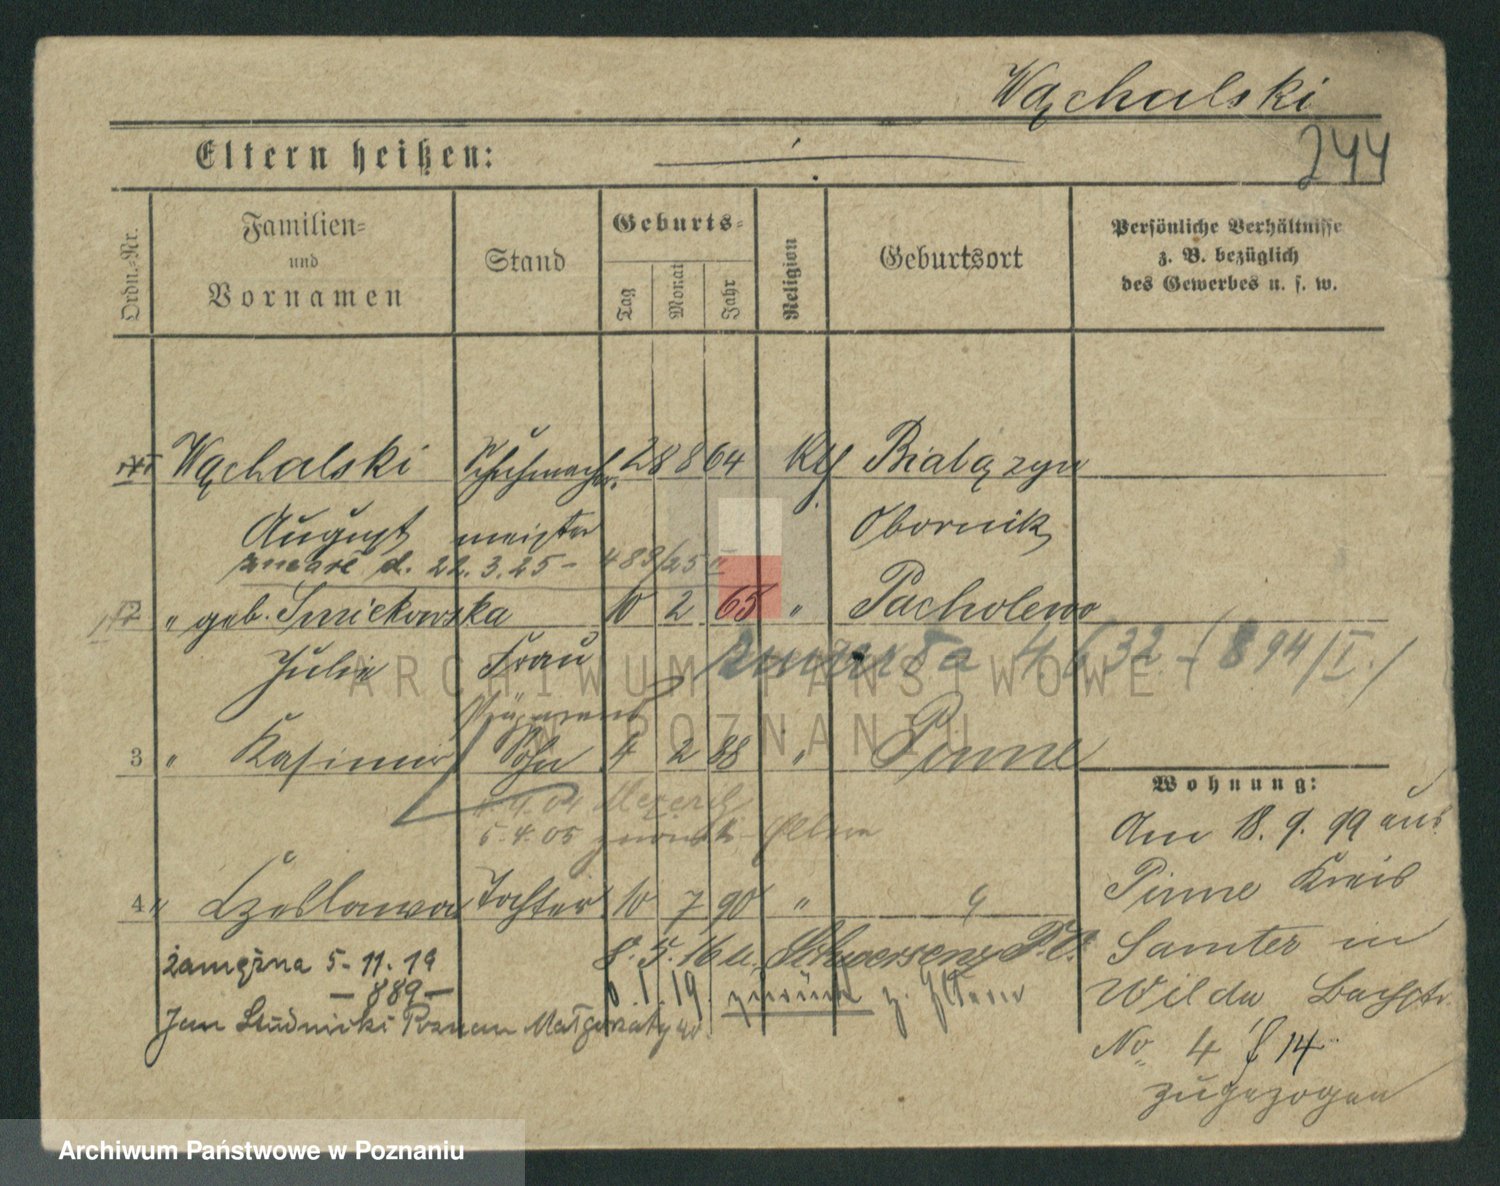 Wąchalski
244
Eltern heißen:
Ordn.-Nr.
Familien-
und
Vornamen
Stand
Geburts-
Tag
Monat
Jahr
Religion
Geburtsort
Persönliche Verhältnisse
z. B. bezüglich
des Gewerbes u. s. w.
Wąchalski Schuhmacher 28 8 64 Kth. Bialązyn
August meister Obornik
zmarł d. 22.3.25 - 483/25 II
2 " geb. Smiekowska 10 2 65 " Pacholewo
Julie Frau zmarła 4.6.32 - (894/I.)
3 " Kasimir Sohn 4 2 88 " Pinne
Wohnung:
4.9.04 Mezeritz
5.4.05 zurück Eltern
Am 18.9.99 aus
Pinne Kreis
4 " Czeslawa Tochter 10 7 90 " "
8.5.16 u. Schwersenz P.O.
Samter in
zamężna 5-11-19
- 889 -
6.1.19. zurück z. Eltern
Wilda Bachstr.
Jan Studnicki Poznan Małgorzaty
No 4 14
zugezogen
ARCHIWUM PAŃSTWOWE
W POZNANIU
Archiwum Państwowe w Poznaniu